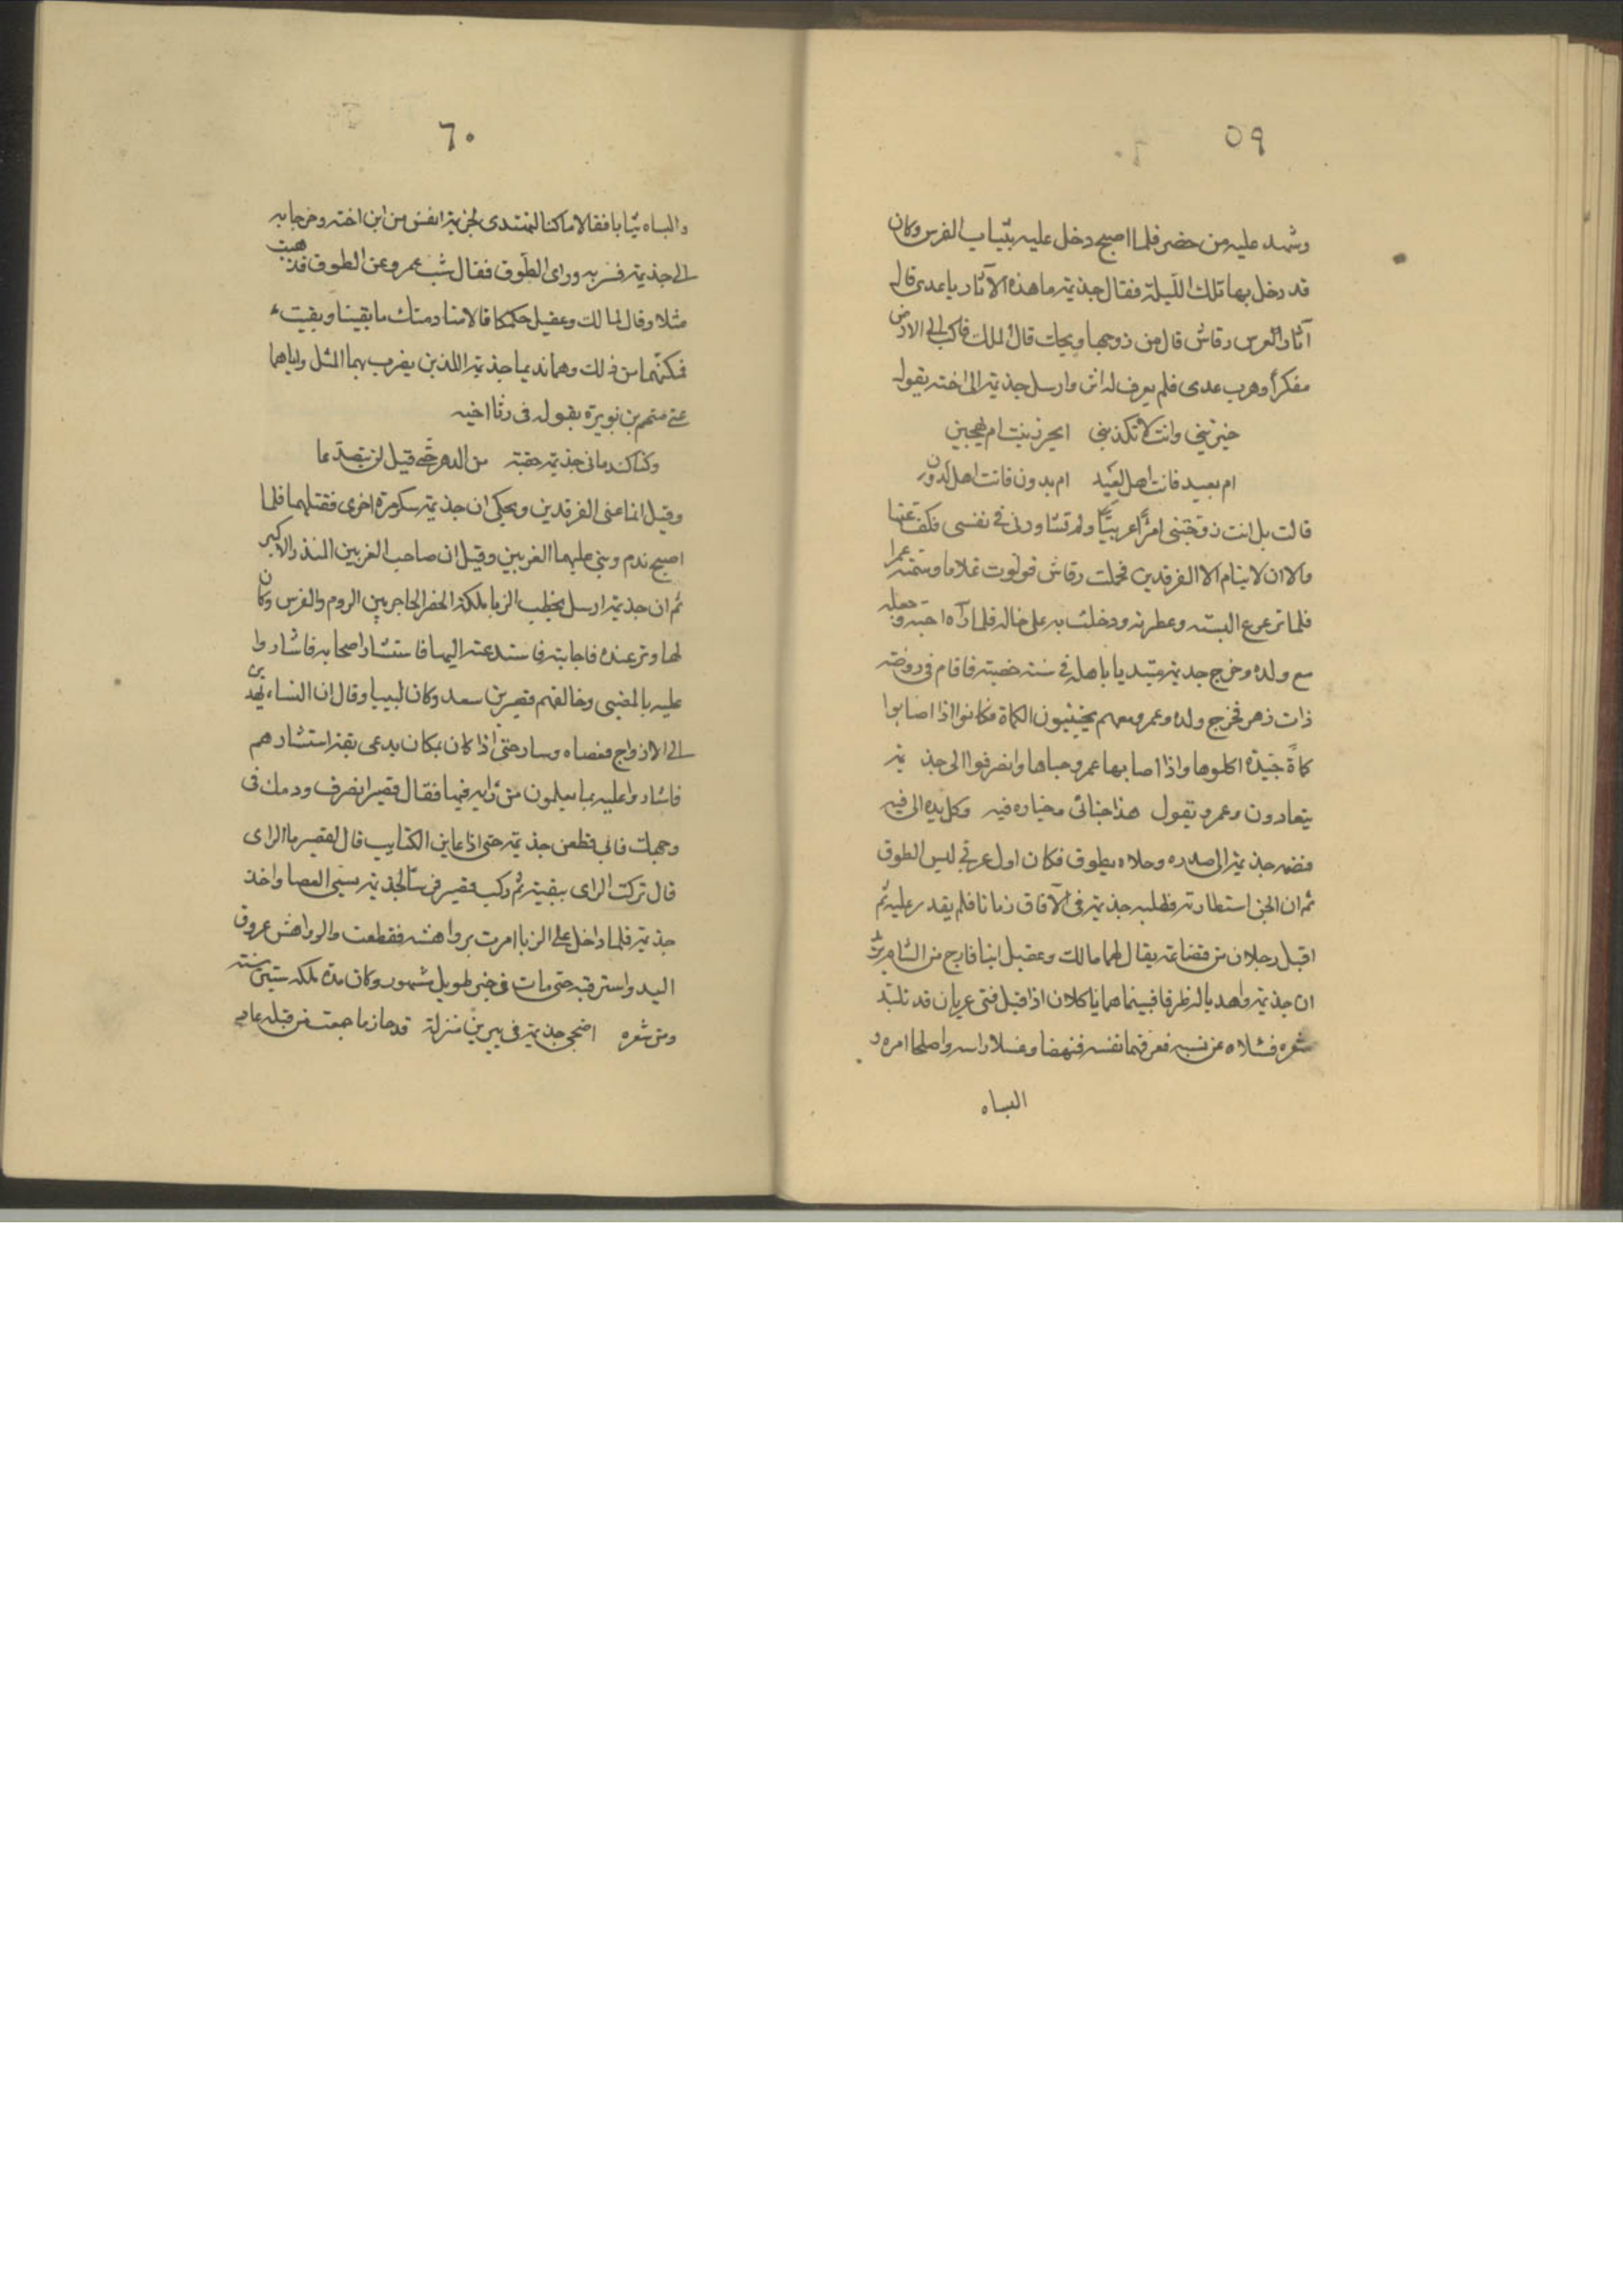 ٥٩
وشهد عليه من حضر فلما اصبح دخل عليه بثياب الفرس وكان
قد دخل بها تلك الليلة فقال جذيمة ما هذه الآثار يا عدى قال
آثار العرس رقاش قال من زوجها ويحك قال الملك فاكب الى الارض
مفكراً وهرب عدى فلم يعرف له اثر وارسل جذيمة الى اخته يقول
خبرينى وانت لا تكذبينى ابحر زنيت ام بهجين
ام بعبد فانت اهل لعبد ام بدون فانت اهل لدون
قالت بل انت زوجتنى امرًأ عربيًّا ولم تشاورنى فى نفسى فكف عنها
وآلا ان لا ينام الا الفرقدين فحملت رقاش فولدت غلاما وسمته عمرا
فلما ترعرع البسته وعطرته ودخلت به على خاله فلما رآه احبه وجعله
مع ولده وخرج جديمة متبديا باهله فى سنة خصبة فاقام فى روضة
ذات زهر فخرج ولده وعمرو معهم يجتنيون الكماة فكانوا اذا اصابوا
كماةً جيدة اكلوها واذا اصابها عمرو خباها وانصرفوا الى جذ يمة
يتعادون وعمرو يقول هذا جنائى وخياره فيه وكل يده الى فيه
فضمه جذيمة الى صدره وحلاه بطوق فكان اول عربى لبس الطوق
ثم ان الجن استطارته فطلبه جذيمة فى الآفاق زمانا فلم يقدر عليه ثم
اقبل رجلان من قضاعة يقال لهما مالك وعقيل ابنا فارج من الشام يريدان
ان جذيمة واهديا له ظرفا فبينما هما ياكلان اذ اقبل فتى عريان قد تلبّد
شعره فسئلاه عن نسبه فعرفهما نفسه فنهضا وغسلا راسه واصلحا امره و
البساه
٦٠
والبساه ثيابا فقالا ما كنا لنهتدى لجذيمة انفس من ابن اخته وخرجا به
الى جذيمة فسر به وراى الطوق فقال شب عمرو عن الطوق فذهبت
مثلا وقال لمالك وعقيل حكمكما قالا منادمتك ما بقينا وبقيت
فمكنهما من ذلك وهما نديما جذيمة اللذين يضرب بهما المثل واياهما
عنى متمم بن نويرة بقوله فى رثا اخيه
وكنا كندمانى جذيمة حقبة من الدهر حتى قيل لن يتصدعا
وقيل انما عنى الفرقدين ويحكى ان جذيمة سكر مرة اخرى فقتلهما فلما
اصبح ندم وبنى عليهما الغريين وقيل ان صاحب الغريين المنذر الاكبر
ثم ان جذيمة ارسل يخطب الزبا ملكة الحضر الحاجز بين الروم والفرس وكان
لها وتر عنده فاجابته فاستدعته اليها فاستشار اصحابه فاشاروا
عليه بالمضى وخالفهم قصير بن سعد وكان لبيبا وقال ان النساء يهدين
الى الازواج فعصاه وسار حتى اذا كان بمكان يدعى بقة استشارهم
فاشاروا عليه بما يعلمون من رايه فيها فقال قصير انصرف ودمك فى
وجهك فابى فظعن جذيمة حتى اذا عاين الكتايب قال لقصير ما الراى
قال تركت الراى ببقة ثم ركب قصير فرسًا لجذيمة يسمى العصا واخذ
جذيمة فلما داخل على الزبا امرت برواهشه فقطعت والرواهش عروق
اليد واسترقبه حتى مات فى خبر طويل مشهور وكان مدة ملكه ستين سنة
ومن شعره اضحى جذيمة فى يبرين منزلة قد حاز ما جمعت من قبله عاد